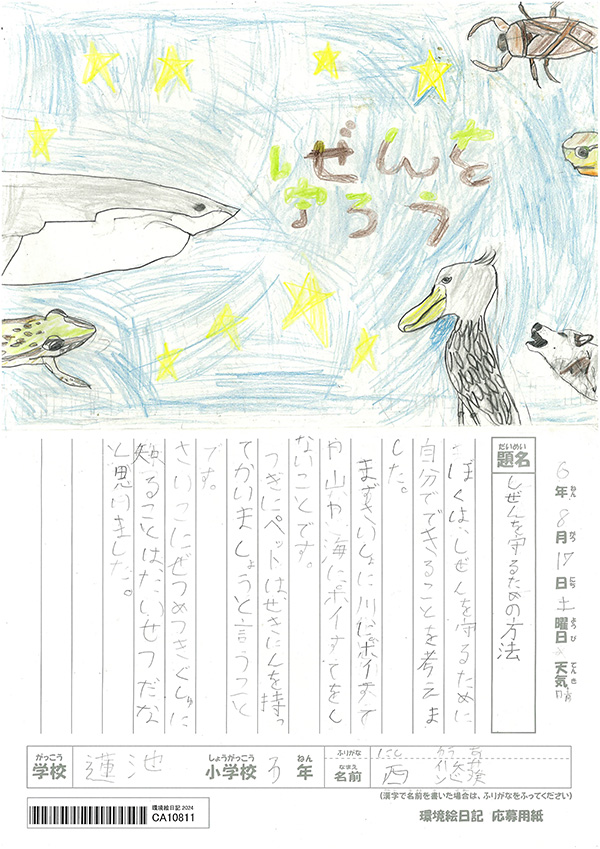 しぜんを
守ろう
6年8月17日土曜日 天気晴
ねん がつ にち ようび てんき
だいめい
題名
しぜんを守るための方法
ぼくは、しぜんを守るために
自分でできることを考えま
した。
まずさいしょに川にポイすて
や山や海にポイすてをし
ないことです。
つぎにペットはせきにんを持っ
てかいましょうと言うこと
です。
さいごにぜつめつきぐしゅに
知ることはたいせつだな
と思いました。
がっこう
学校
蓮池
しょうがっこう
小学校
3
ねん
年
ふりがな
なまえ
名前
にし
西
(漢字で名前を書いた場合は、ふりがなをふってください)
環境絵日記 2024
CA10811
環境絵日記 応募用紙